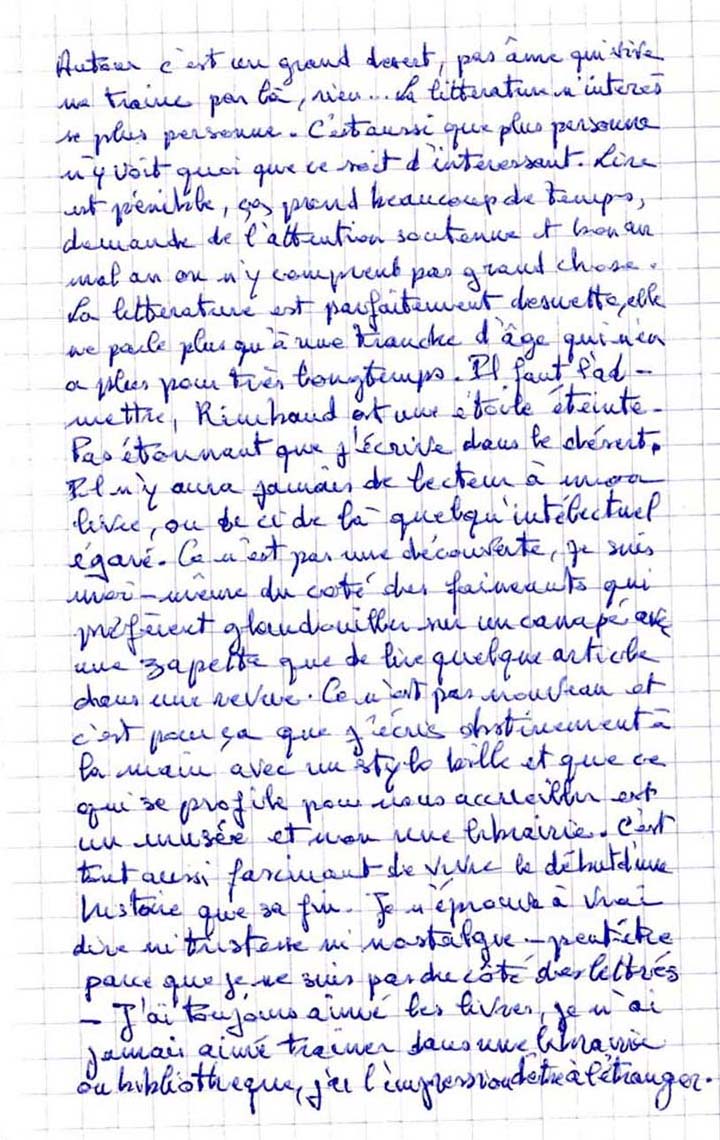 Autour c'est un grand desert, pas âme qui vive
ne traine par là, rien... La litterature n'interes
se plus personne. C'est aussi que plus personne
n'y voit quoi que ce soit d'interessant. Lire
est pénible, ça prend beaucoup de temps,
demande de l'attention soutenue et bon an
mal an on n'y comprend pas grand chose.
La litterature est parfaitement desuette, elle
ne parle plus qu'à une tranche d'âge qui n'en
a plus pour très longtemps. Il faut l'ad-
mettre, Rimbaud est une étoile éteinte.
Pas étonnant que j'écrive dans le désert.
Il n'y aura jamais de lecteur à mon
livre, ou de ci de là quelqu'intélectuel
égaré. Ce n'est pas une découverte, je suis
moi-même du coté des faineants qui
préfèrent glandouiller sur un canapé avec
une zapette que de lire quelque article
dans une revue. Ce n'est pas nouveau et
c'est pour ça que j'écris obstinement à
la main avec un stylo bille et que ce
qui se profile pour nous accueillir est
un musée et non une librairie. C'est
tout aussi fascinant de vivre le début d'une
histoire que sa fin. Je n'éprouve à vrai
dire ni tristesse ni nostalgie - peut être
parce que je ne suis pas du côté des lettrés
- J'ai toujours aimé les livres, je n'ai
jamais aimé trainer dans une librairie
ou bibliotheque, j'ai l'impression d'être à l'étranger.